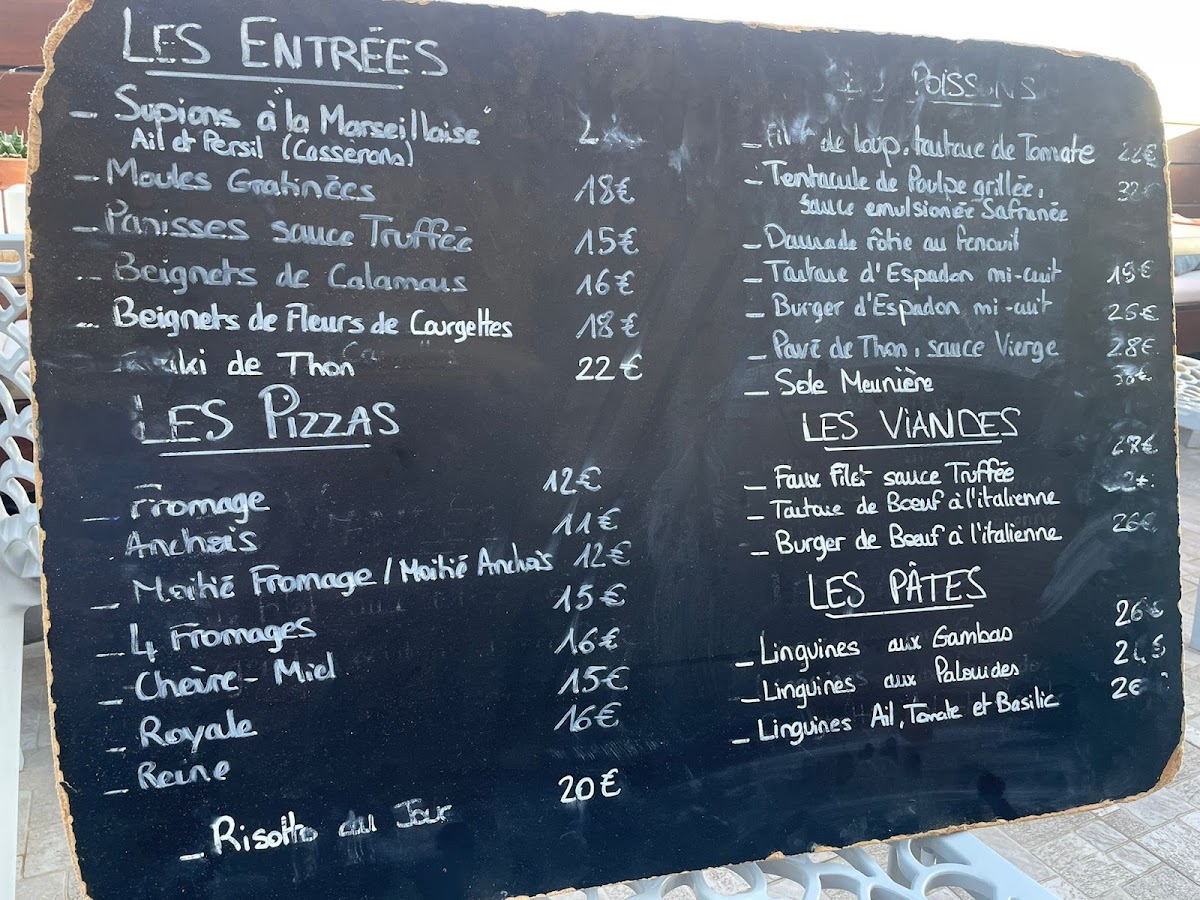 LES ENTRÉES
_ Supions "à la Marseillaise"
Ail et Persil (Casserons)
_ Moules Gratinées 18€
_ Panisses sauce Truffée 15€
_ Beignets de Calamars 16€
_ Beignets de Fleurs de Courgettes 18€
de Thon 22€
LES PIZZAS
_ Fromage 12€
Anchois 11€
_ Moitié Fromage / Moitié Anchois 12€
_ 4 Fromages 15€
_ Chèvre - Miel 16€
_ Royale 15€
_ Reine 16€
_ Risotto du Jour 20€
POISSONS
_ Filet de loup, tartare de Tomate 22€
_ Tentacule de Poulpe grillée,
sauce emulsionée Safranée
_ Daurade rôtie au fenouil
_ Tartare d'Espadon mi-cuit 19€
_ Burger d'Espadon mi-cuit 26€
_ Pavé de Thon, sauce Vierge 28€
_ Sole Meunière
LES VIANDES
_ Faux Filet sauce Truffée
_ Tartare de Bœuf à l'italienne
_ Burger de Bœuf à l'italienne 26€
LES PÂTES
_ Linguines aux Gambas 26€
_ Linguines aux Palourdes
_ Linguines Ail, Tomate et Basilic